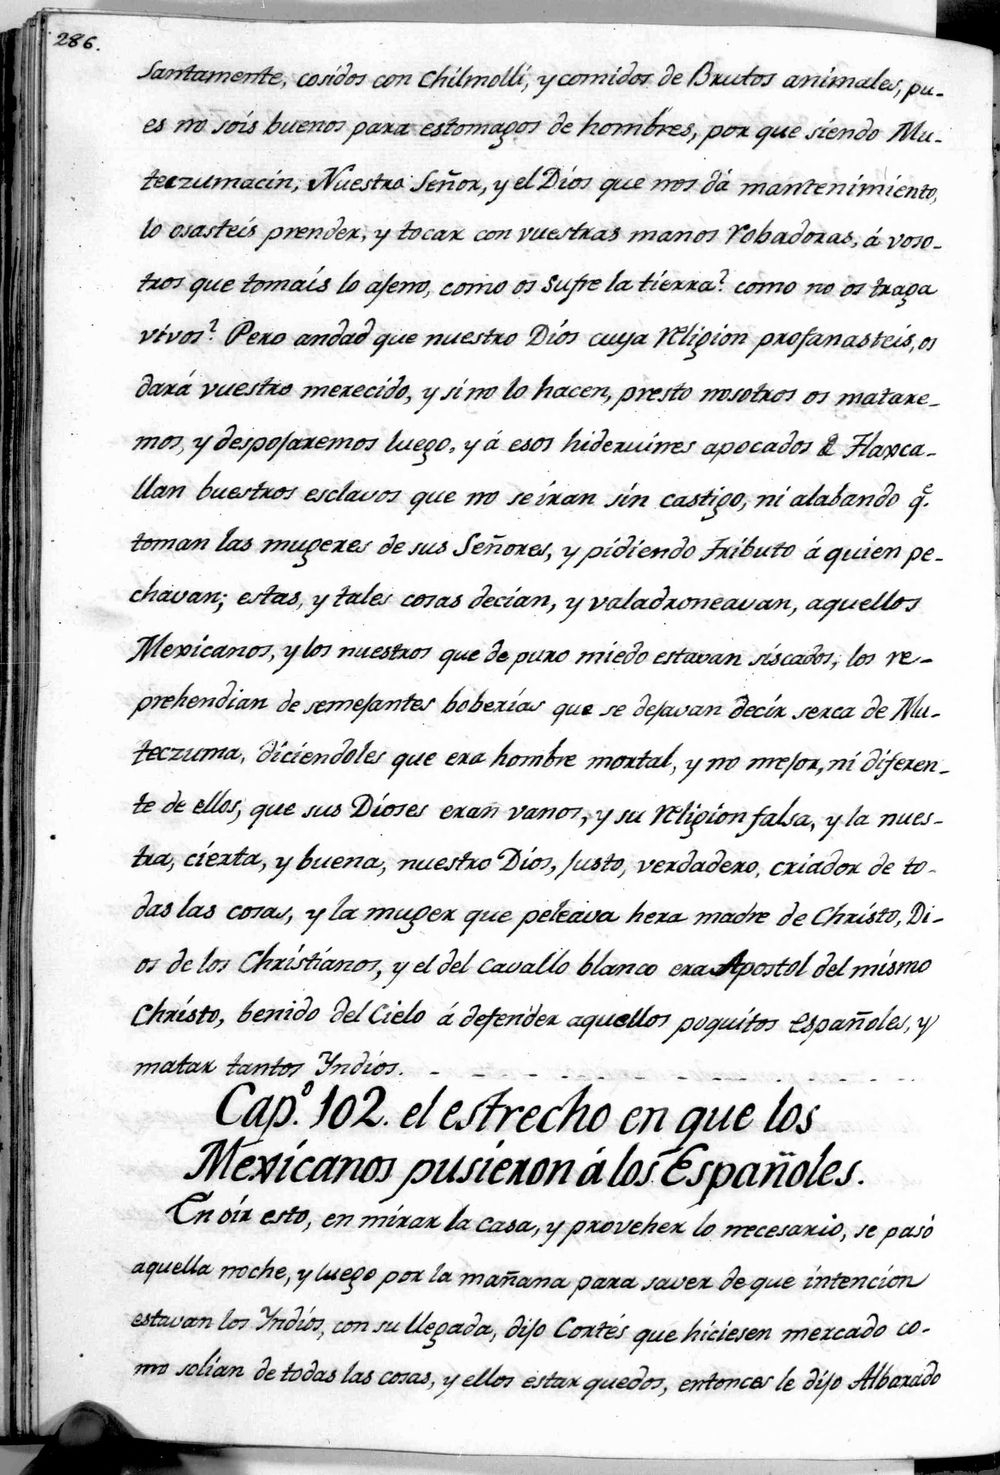 286.
Santamente, cosidos con Chilmolli, y comidos de Brutos animales, pu-
es no sois buenos para estomagos de hombres, por que siendo Mu-
teczumacin, Nuestro Señor, y el Dios que nos dá mantenimiento,
lo osasteis prender, y tocar con vuestras manos robadoras, á voso-
tros que tomais lo ageno, como os sufre la tierra? como no os traga
vivos? Pero andad que nuestro Dios cuya religion profanasteis, os
dará vuestro merecido, y si no lo hacen, presto nosotros os matare-
mos, y despojaremos luego, y á esos hideruines apocados de Tlaxca-
llan buestros esclavos que no se iran sin castigo, ni alabando q.e
toman las mugeres de sus Señores, y pidiendo Tributo á quien pe-
chavan; estas, y tales cosas decian, y valadroneavan, aquellos
Mexicanos, y los nuestros que de puro miedo estavan siscados, los re-
prehendian de semejantes boberias que se dejavan decir serca de Mu-
teczuma, diciendoles que era hombre mortal, y no mejor, ni diferen-
te de ellos, que sus Dioses eran vanos, y su religion falsa, y la nues-
tra, cierta, y buena, nuestro Dios, Justo, verdadero, criador de to-
das las cosas, y la muger que peleava hera madre de Christo, Di-
os de los Christianos, y el del cavallo blanco era Apostol del mismo
Christo, benido del Cielo á defender aquellos poquitos Españoles, y
matar tantos Yndios.
Cap.º 102. el estrecho en que los
Mexicanos pusieron á los Españoles.
En oir esto, en mirar la casa, y proveher lo necesario, se pasó
aquella noche, y luego por la mañana para saver de que intencion
estavan los Yndios, con su llegada, dijo Cortés que hiciesen mercado co-
mo solian de todas las cosas, y ellos estar quedos, entonces le dijo Albarado